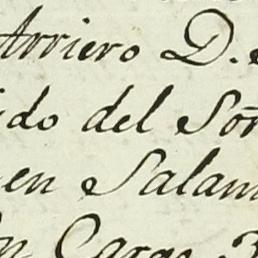 Arriero D.
do del Sor̃
en Salam
Carga 3